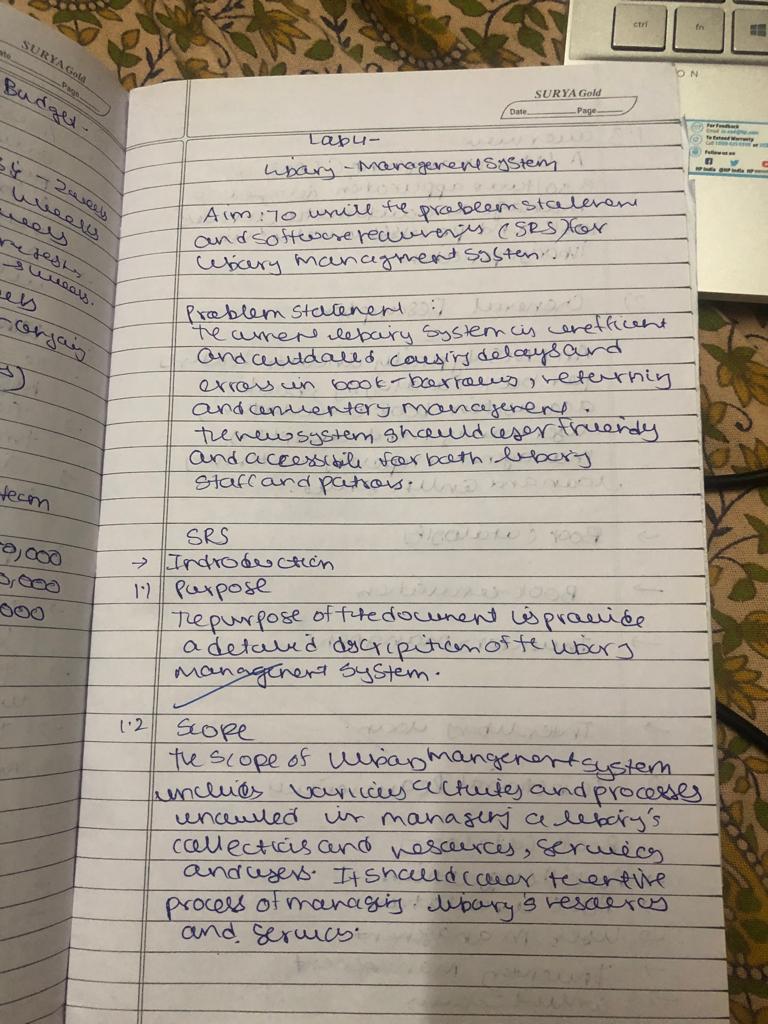 SURYA Gold
Page
Budget.
2 weeks
weeks
weeks
team
0,000
0,000
000
ctrl
fn
ON
For Feedback
To Extend Warranty
Follow us on
HP India @HP India
SURYA Gold
Date Page
Lab 4-
Library - Management System
Aim: To write the problem statement
and software requirements (SRS) for
library managment system.
Problem statement :
The current library system is inefficient
and outdated causing delays and
errors in book-borrows, returning
and inventory management.
The new system should user friendly
and accessible for both library
staff and patrons.
SRS
→ Introduction
1.1 Purpose
The purpose of the document is provide
a detailed discription of the library
management system.
1.2 Scope
The scope of library mangement system
includes various activities and processes
involved in managing a library's
collections and resources, services
and users. It should cover the entire
process of managing library's resources
and services.